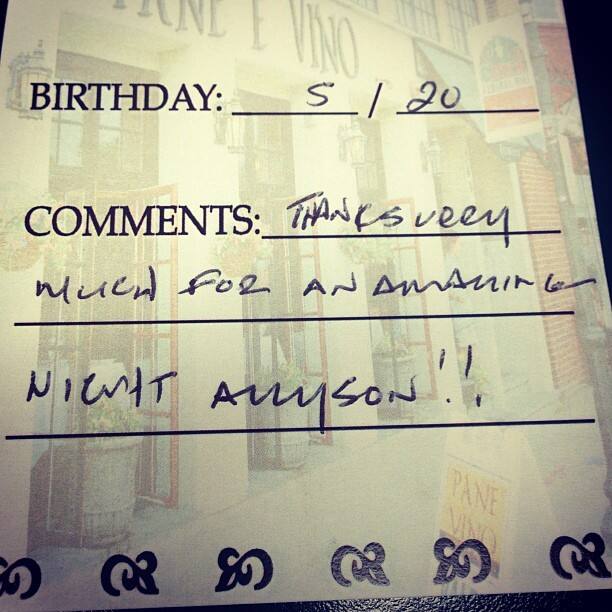 PANE E VINO
BIRTHDAY: 5 / 20
COMMENTS: THANKS VERY
MUCH FOR AN AMAZING
NIGHT ALLYSON!!
PANE
VINO